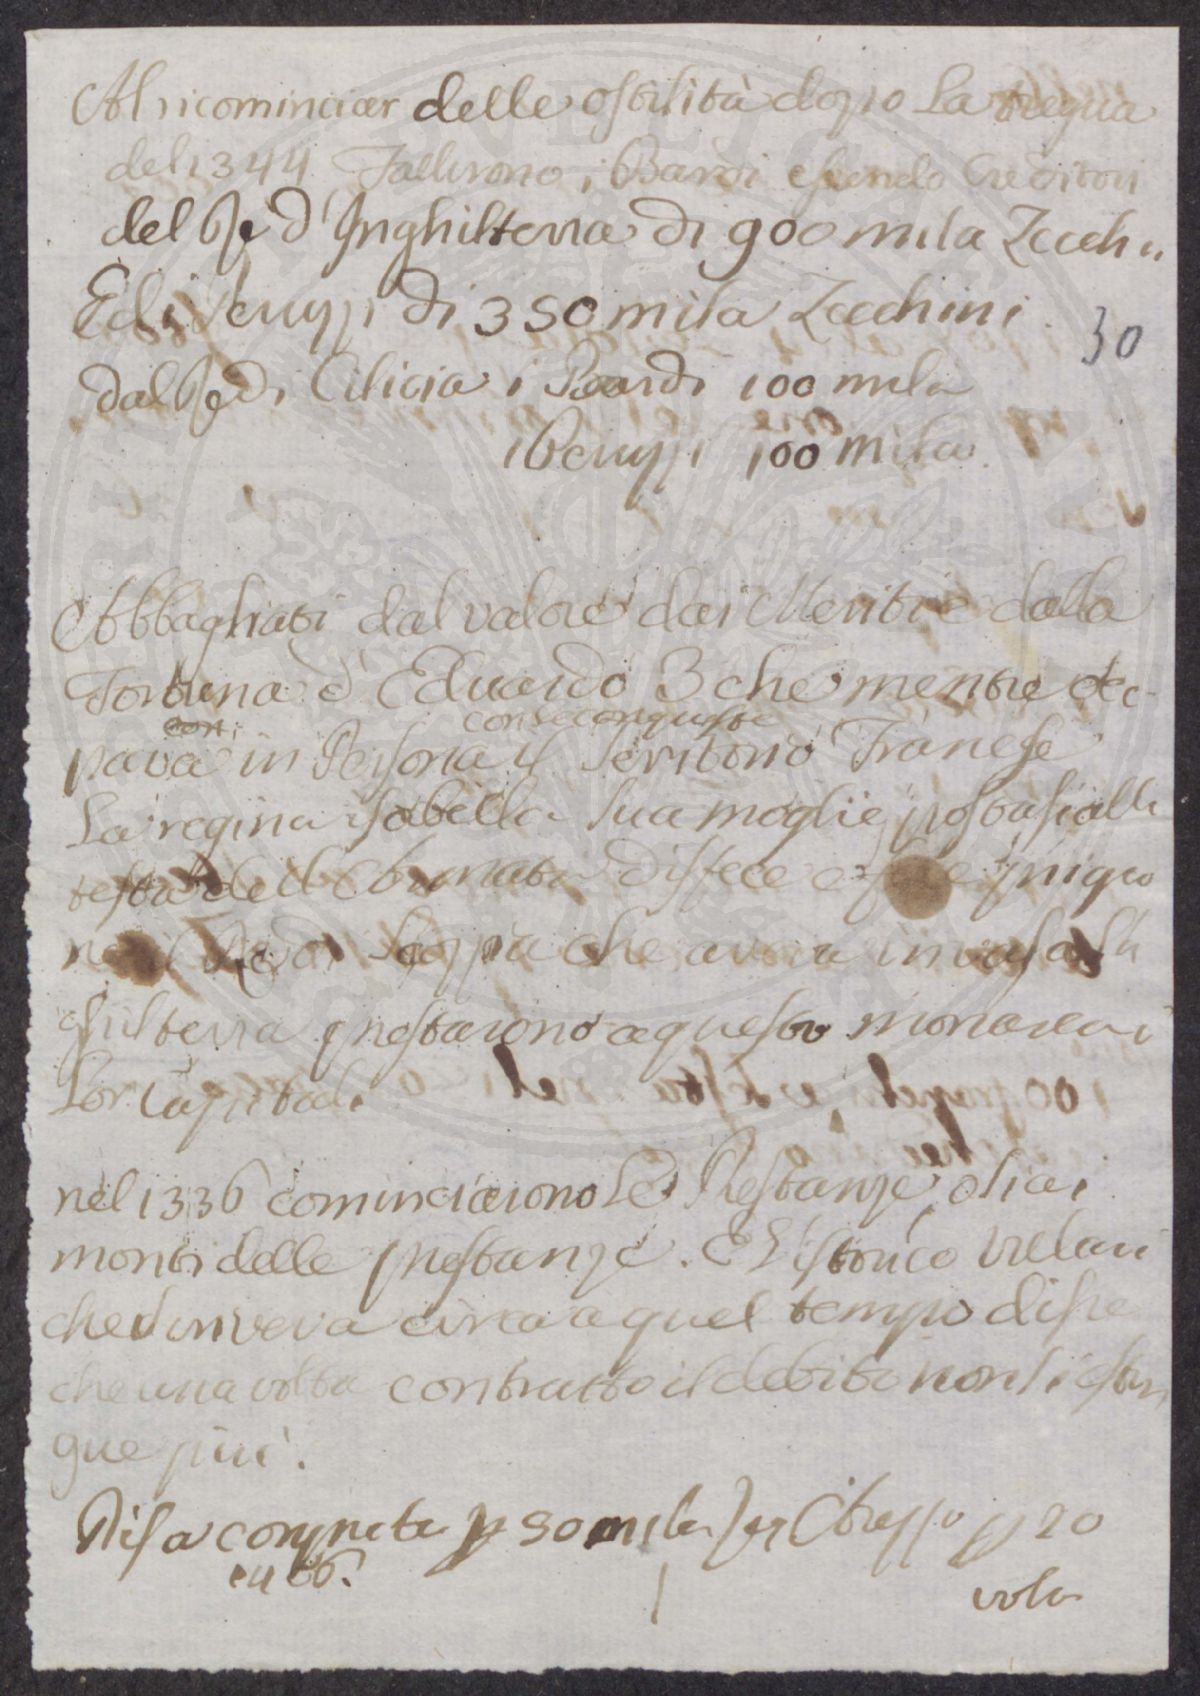 Al ricominciar delle ostilità dopo La tregua
del 1344 Fallirono i Bardi essendo Creditori
del Re d'Inghilterra di 900 mila Zecchi
E di Peruzzi di 350 mila Zecchini
30
dal Re di Cilicia i Bardi 100 mila
i Peruzzi 100 mila
Abbagliati dal valore dai Meriti e dalla
Fortuna d'Eduardo 3 che mentre oc-
con se conquiste
pava in Persona il Teritorio Franese
La regina Isabella sua moglie postasi alla
testa dell'Armata disfece e prigio
il Re di Scozia che aveva invasa l'In
ghilterra prestarono a questo monarca i
Lor Capitali
nel 1336 cominciarono Le Prestanze o sia i
monti delle prestanze. E l'istorico Villani
che viveva circa a quel tempo disse
che una volta contratto il debito non si estin
gue più.
Pisa comprata p 50 mila p 20
1406.
volte